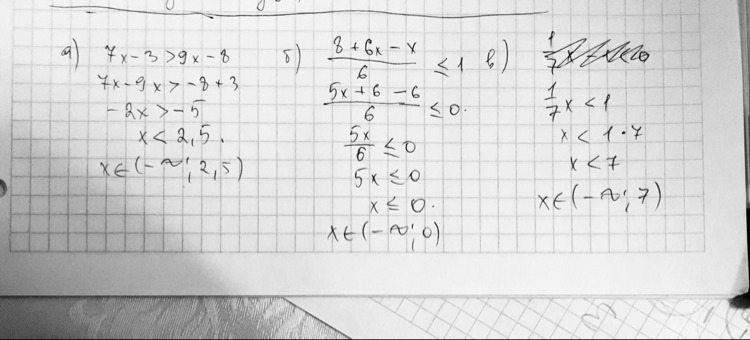 а) 7x-3>9x-8
7x-9x>-8+3
-2x>-5
x<2,5.
x∈(-∞; 2,5)
б) (8+6x-x)/6 ≤1
(5x+6-6)/6 ≤0.
5x/6 ≤0
5x≤0
x≤0.
x∈(-∞; 0)
в)
1/7x<1
x<1·7
x<7
x∈(-∞; 7)